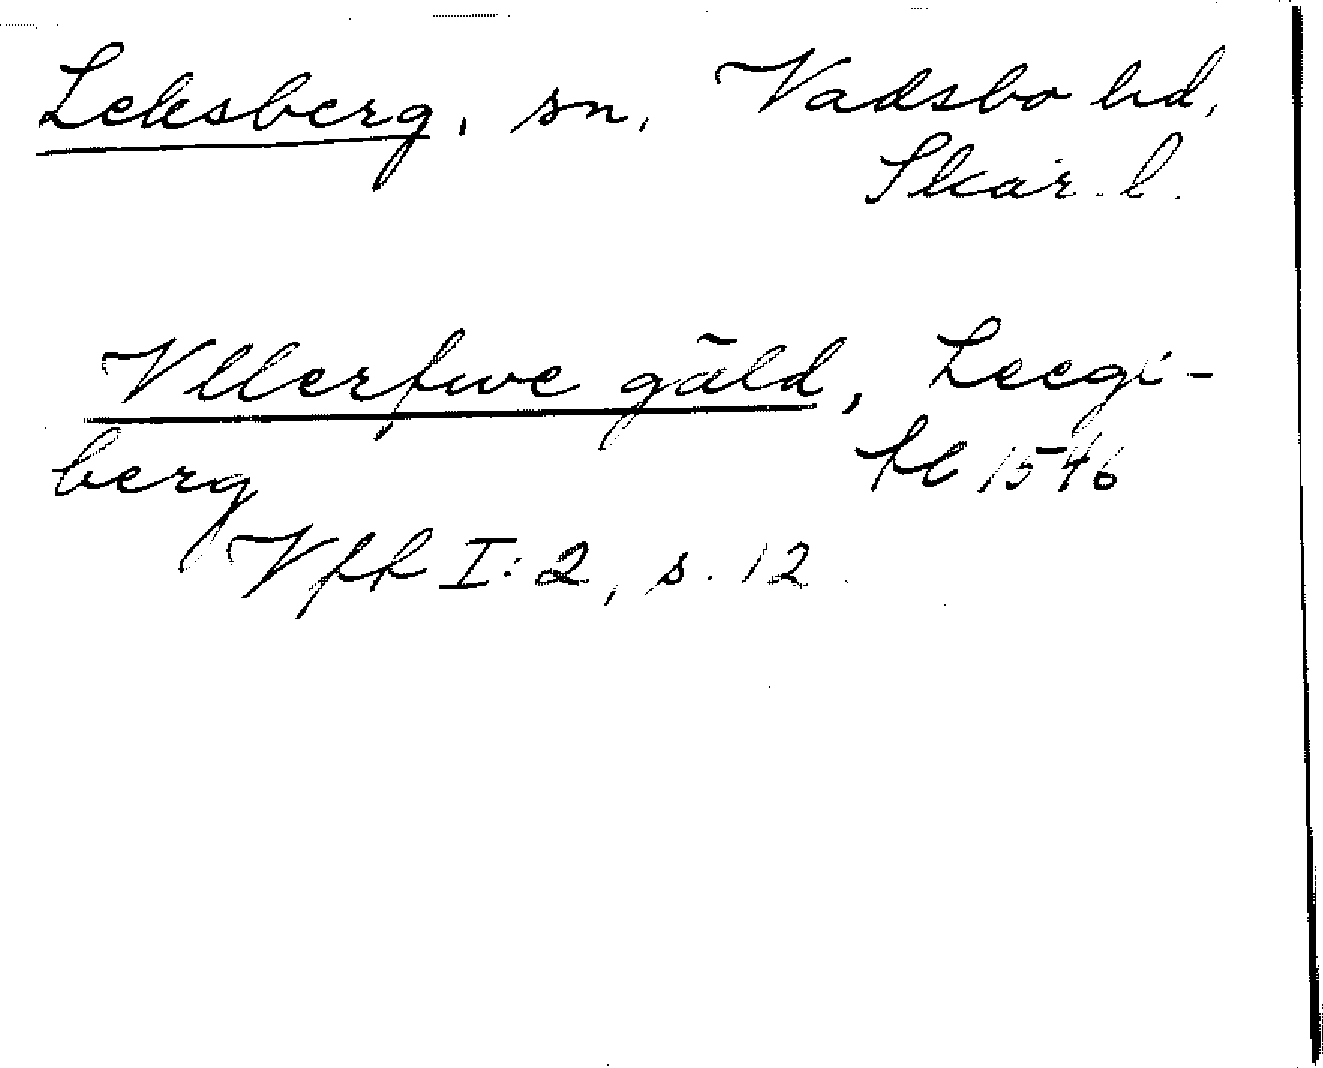 Leksberg, sn, Vadsbo hd,
Skar. l.
Vllerfwe gäld, Leegi-
berg fl 1546
Vffk I:2, s. 12.